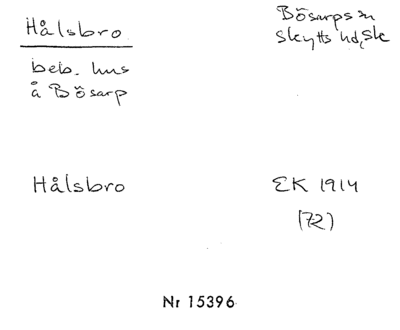 Hålsbro
Bösarps sn
Skytts hd, Sk
beb. hus
å Bösarp
Hålsbro
EK 1914
(72)
Nr 15396